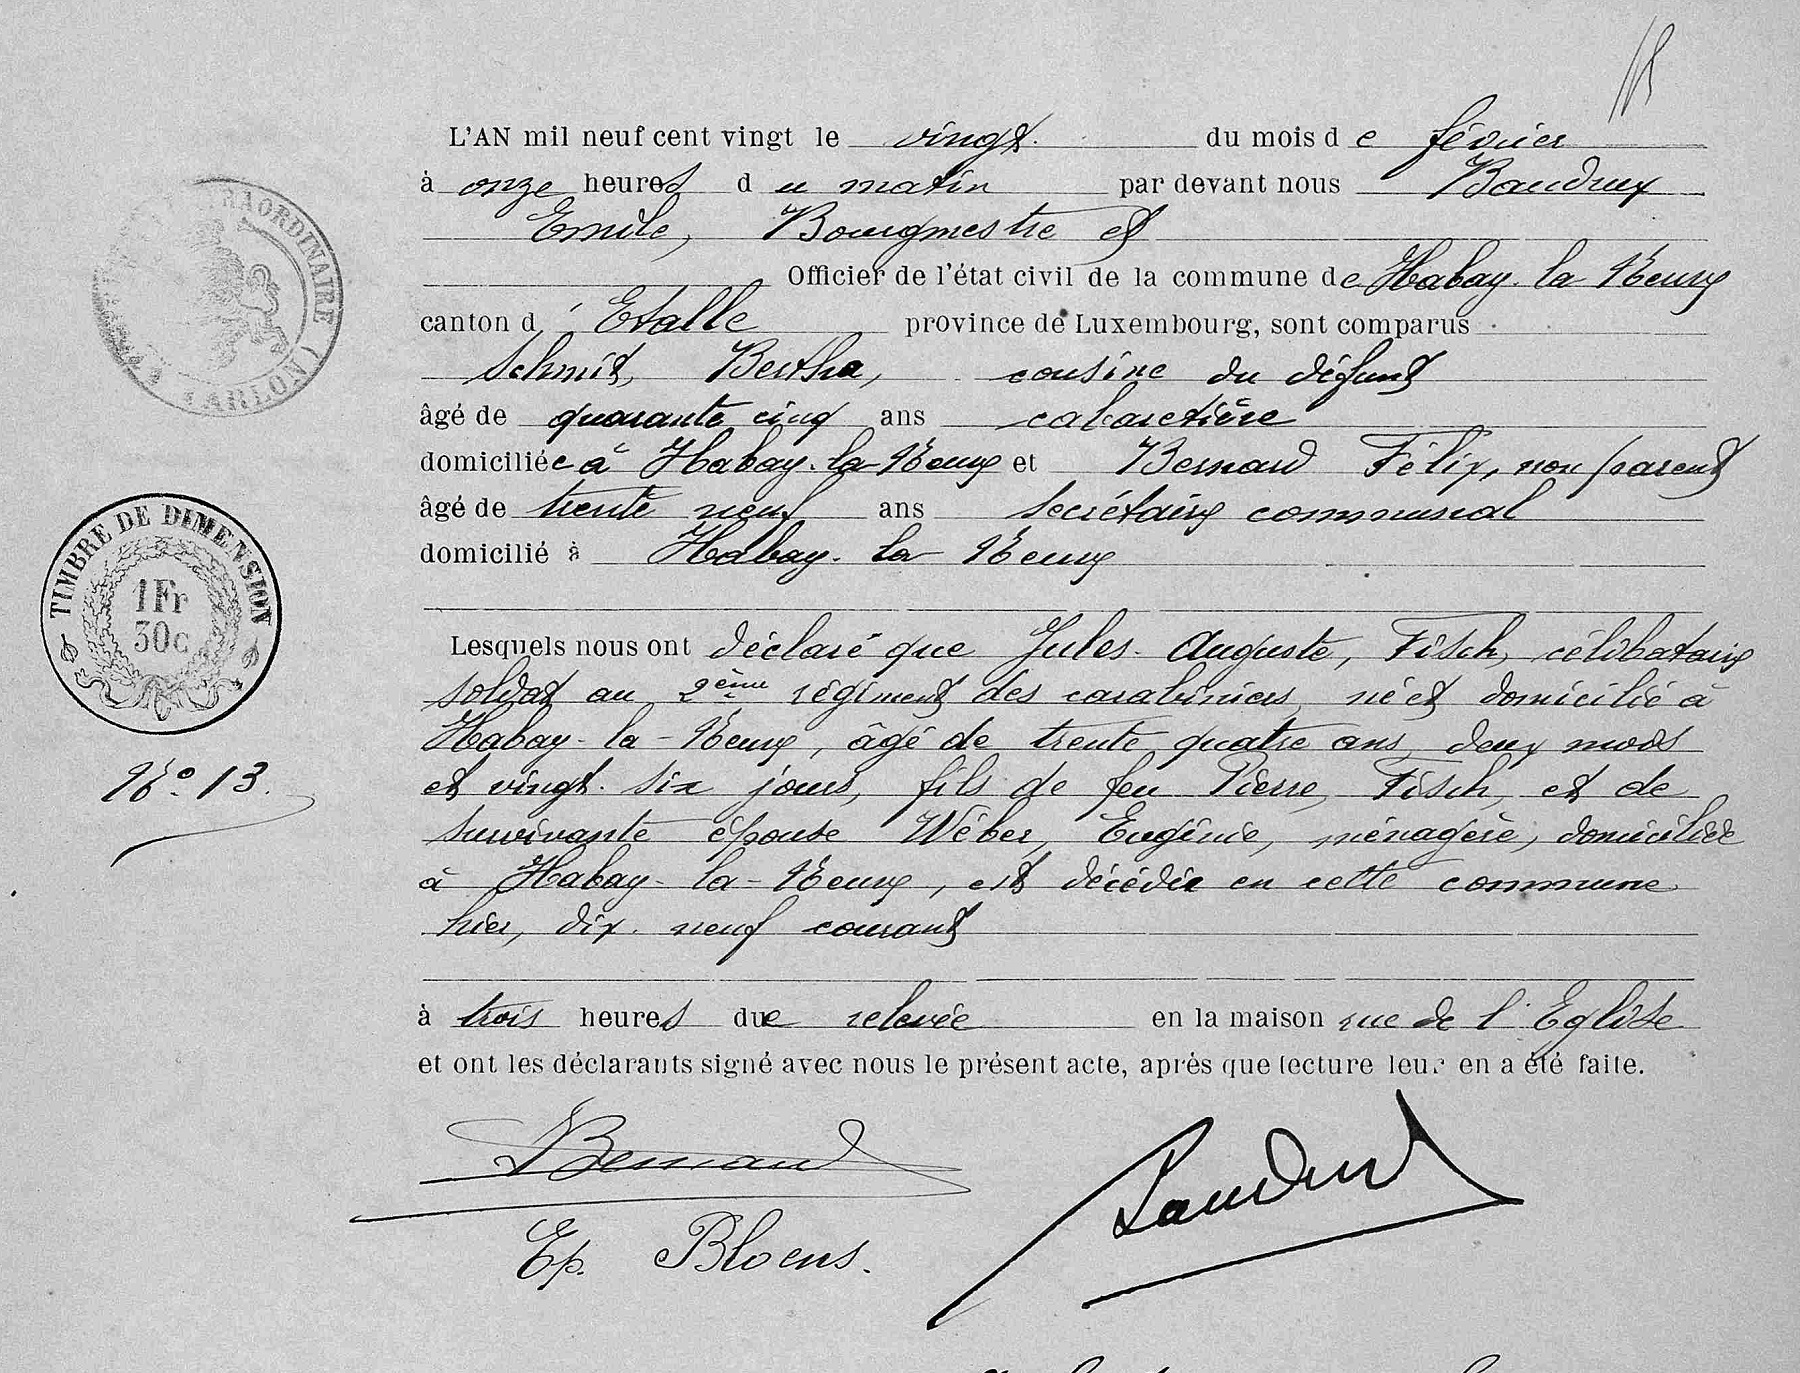 L'AN mil neuf cent vingt le vingt du mois de février
à onze heures du matin par devant nous Baudrux
Emile, Bourgmestre et
Officier de l'état civil de la commune de Habay-la-Neuve
canton d'Etalle province de Luxembourg, sont comparus
Schmit, Bertha, cousine du défunt
âgé de quarante cinq ans cabaretière
domiciliée à Habay-la-Neuve et Bernard Félix, non parent
âgé de trente neuf ans secrétaire communal
domicilié à Habay-la Neuve
Lesquels nous ont déclaré que Jules-Auguste, Fisch, célibataire
soldat au 2ème régiment des carabiniers, né et domicilié à
Habay-la-Neuve, âgé de trente quatre ans, deux mois
et vingt-six jours, fils de feu Pierre, Fisch, et de
survivante épouse Wéber, Eugénie, ménagère, domiciliée
à Habay-la-Neuve, est décédé en cette commune
hier, dix-neuf courant
à trois heures de relevée en la maison rue de l'Eglise
et ont les déclarants signé avec nous le présent acte, après que lecture leur en a été faite.
Bernard
Baudrux
Ep. Bloens.
TRAORDINAIRE
(ARLON)
TIMBRE DE DIMENSION
1Fr
30c
N° 13.